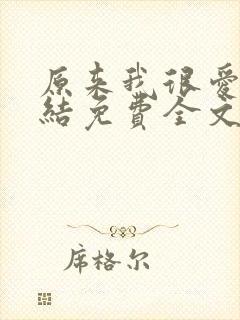 原来我很爱
结免費全文
席格尔